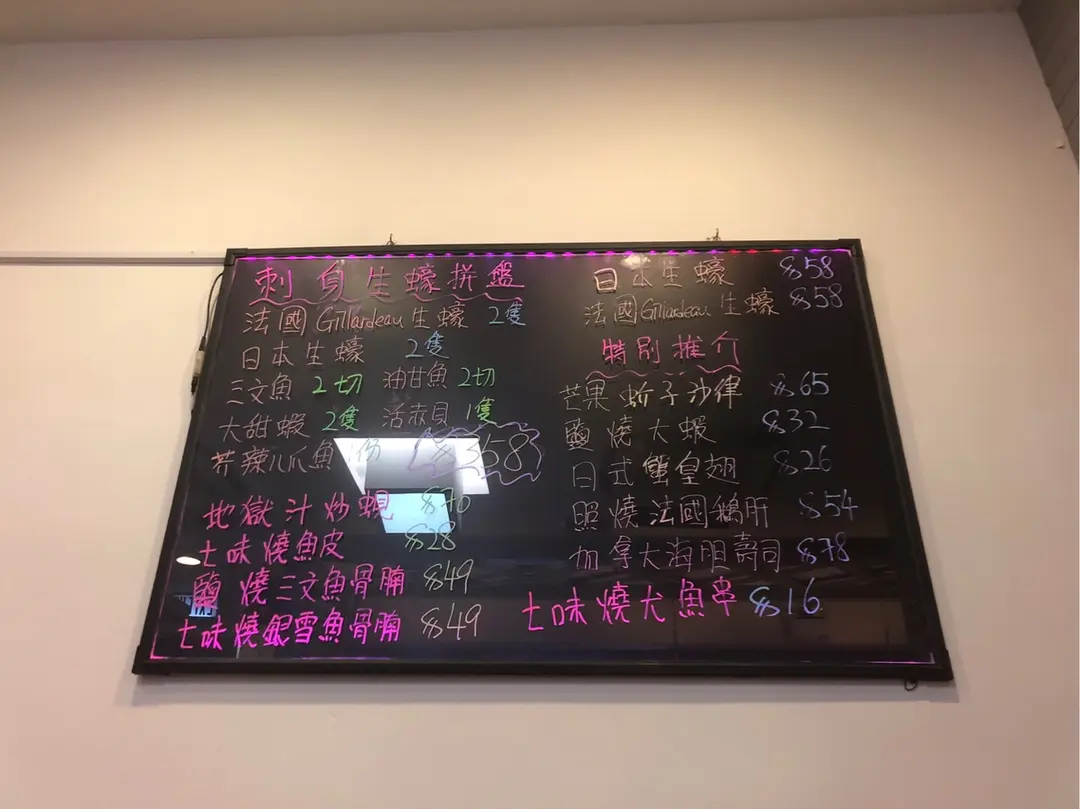 刺身生蠔拼盤
法國Gillardeau生蠔 2隻
日本生蠔 2隻
三文魚 2切 油甘魚 2切
大甜蝦 2隻 活赤貝 1隻
芥辣八爪魚 1份 $358
地獄汁炒蜆 $70
七味燒魚皮 $28
鹽燒三文魚骨腩 $49
七味燒銀雪魚骨腩 $49
日本生蠔 $58
法國Gillardeau生蠔 $58
特別推介
芒果蚧子沙律 $65
鹽燒大蝦 $32
日式蟹皇翅 $26
照燒法國鵝肝 $54
加拿大海胆壽司 $78
七味燒尤魚串 $16